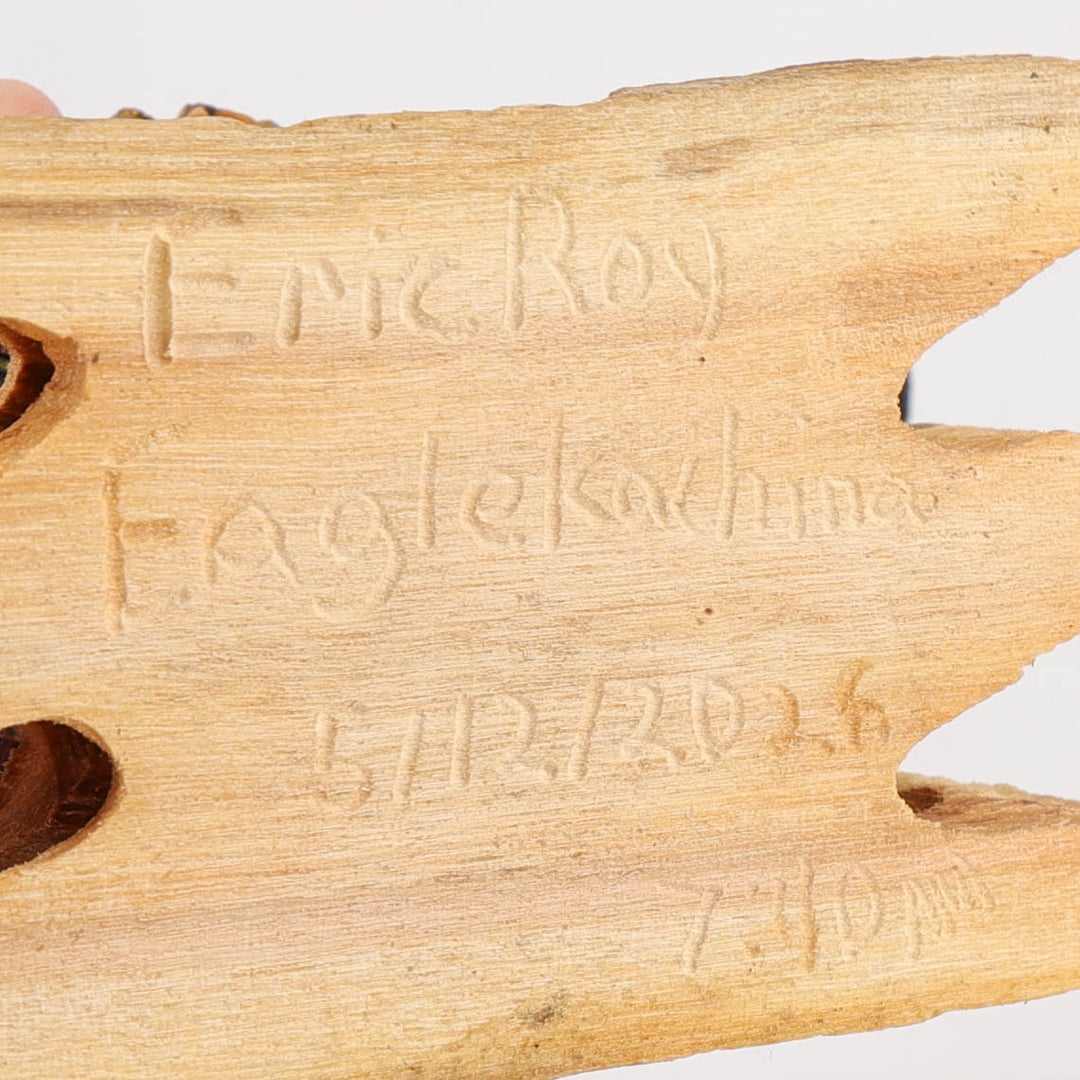 Eric. Roy
Eagle Kachina
5/12/2026
7:40 pm